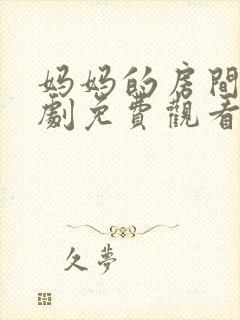 妈妈的房間
劇免費觀看
久夢